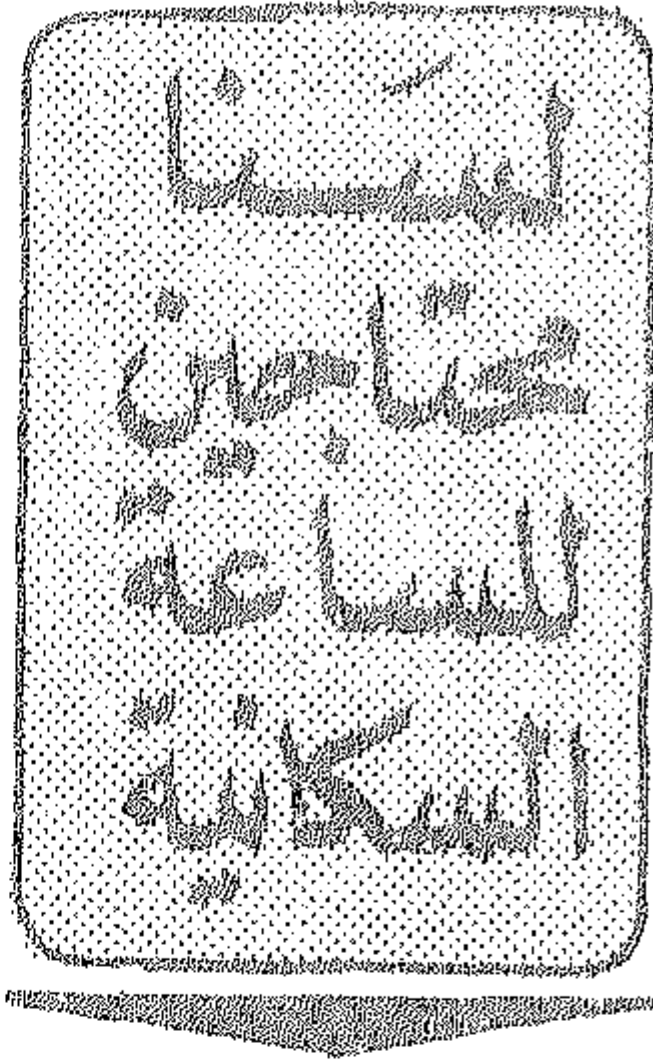 لسنا
محتاجين
للساعة
السكانية